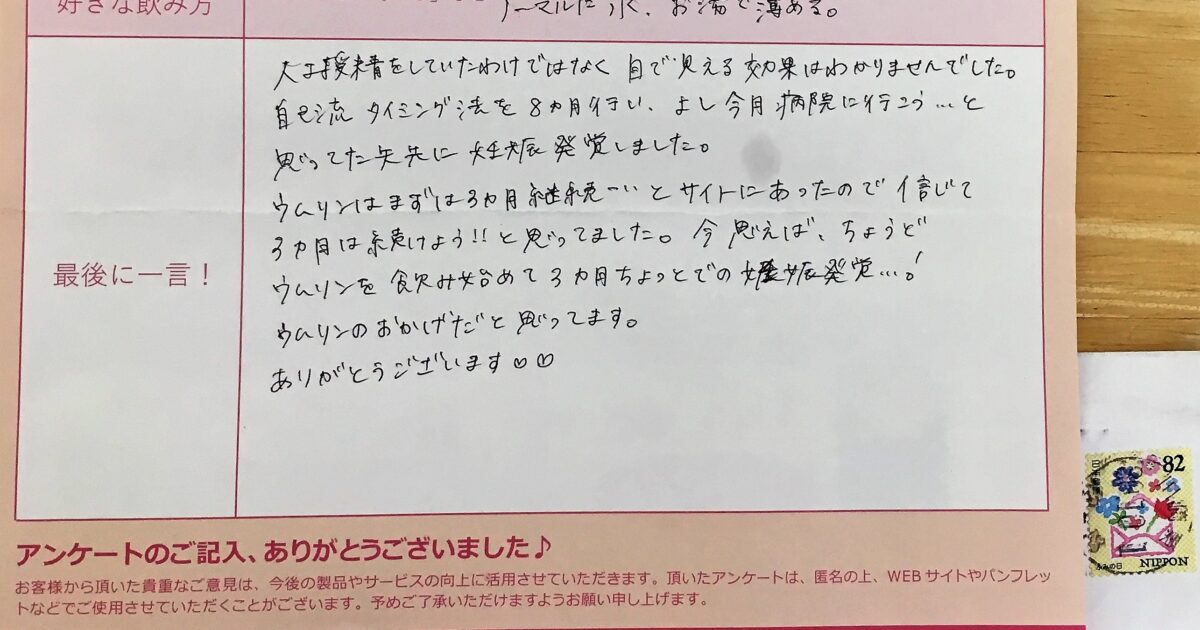 好きな飲み方
ノーマルだ 水、お湯で薄める。
人工授精をしていたわけではなく 目で見える効果はわかりませんでした。
自己流 タイミング法を 8ヵ月行い、よし今月病院に行こう…と
思ってた矢先に 妊娠発覚しました。
ウムリンはまずは3ヵ月継続…いとサイトにあったので信じて
3ヵ月は続けよう!!と思ってました。今思えば、ちょうど
ウムリンを飲み始めて3ヵ月ちょっとでの妊娠発覚…!
ウムリンのおかげだと思ってます。
ありがとうございます♡♡
最後に一言！
アンケートのご記入、ありがとうございました♪
お客様から頂いた貴重なご意見は、今後の製品やサービスの向上に活用させていただきます。頂いたアンケートは、匿名の上、WEBサイトやパンフレッ
トなどでご使用させていただくことがございます。予めご了承いただけますようお願い申し上げます。
82
日本郵便
ふみの日
NIPPON